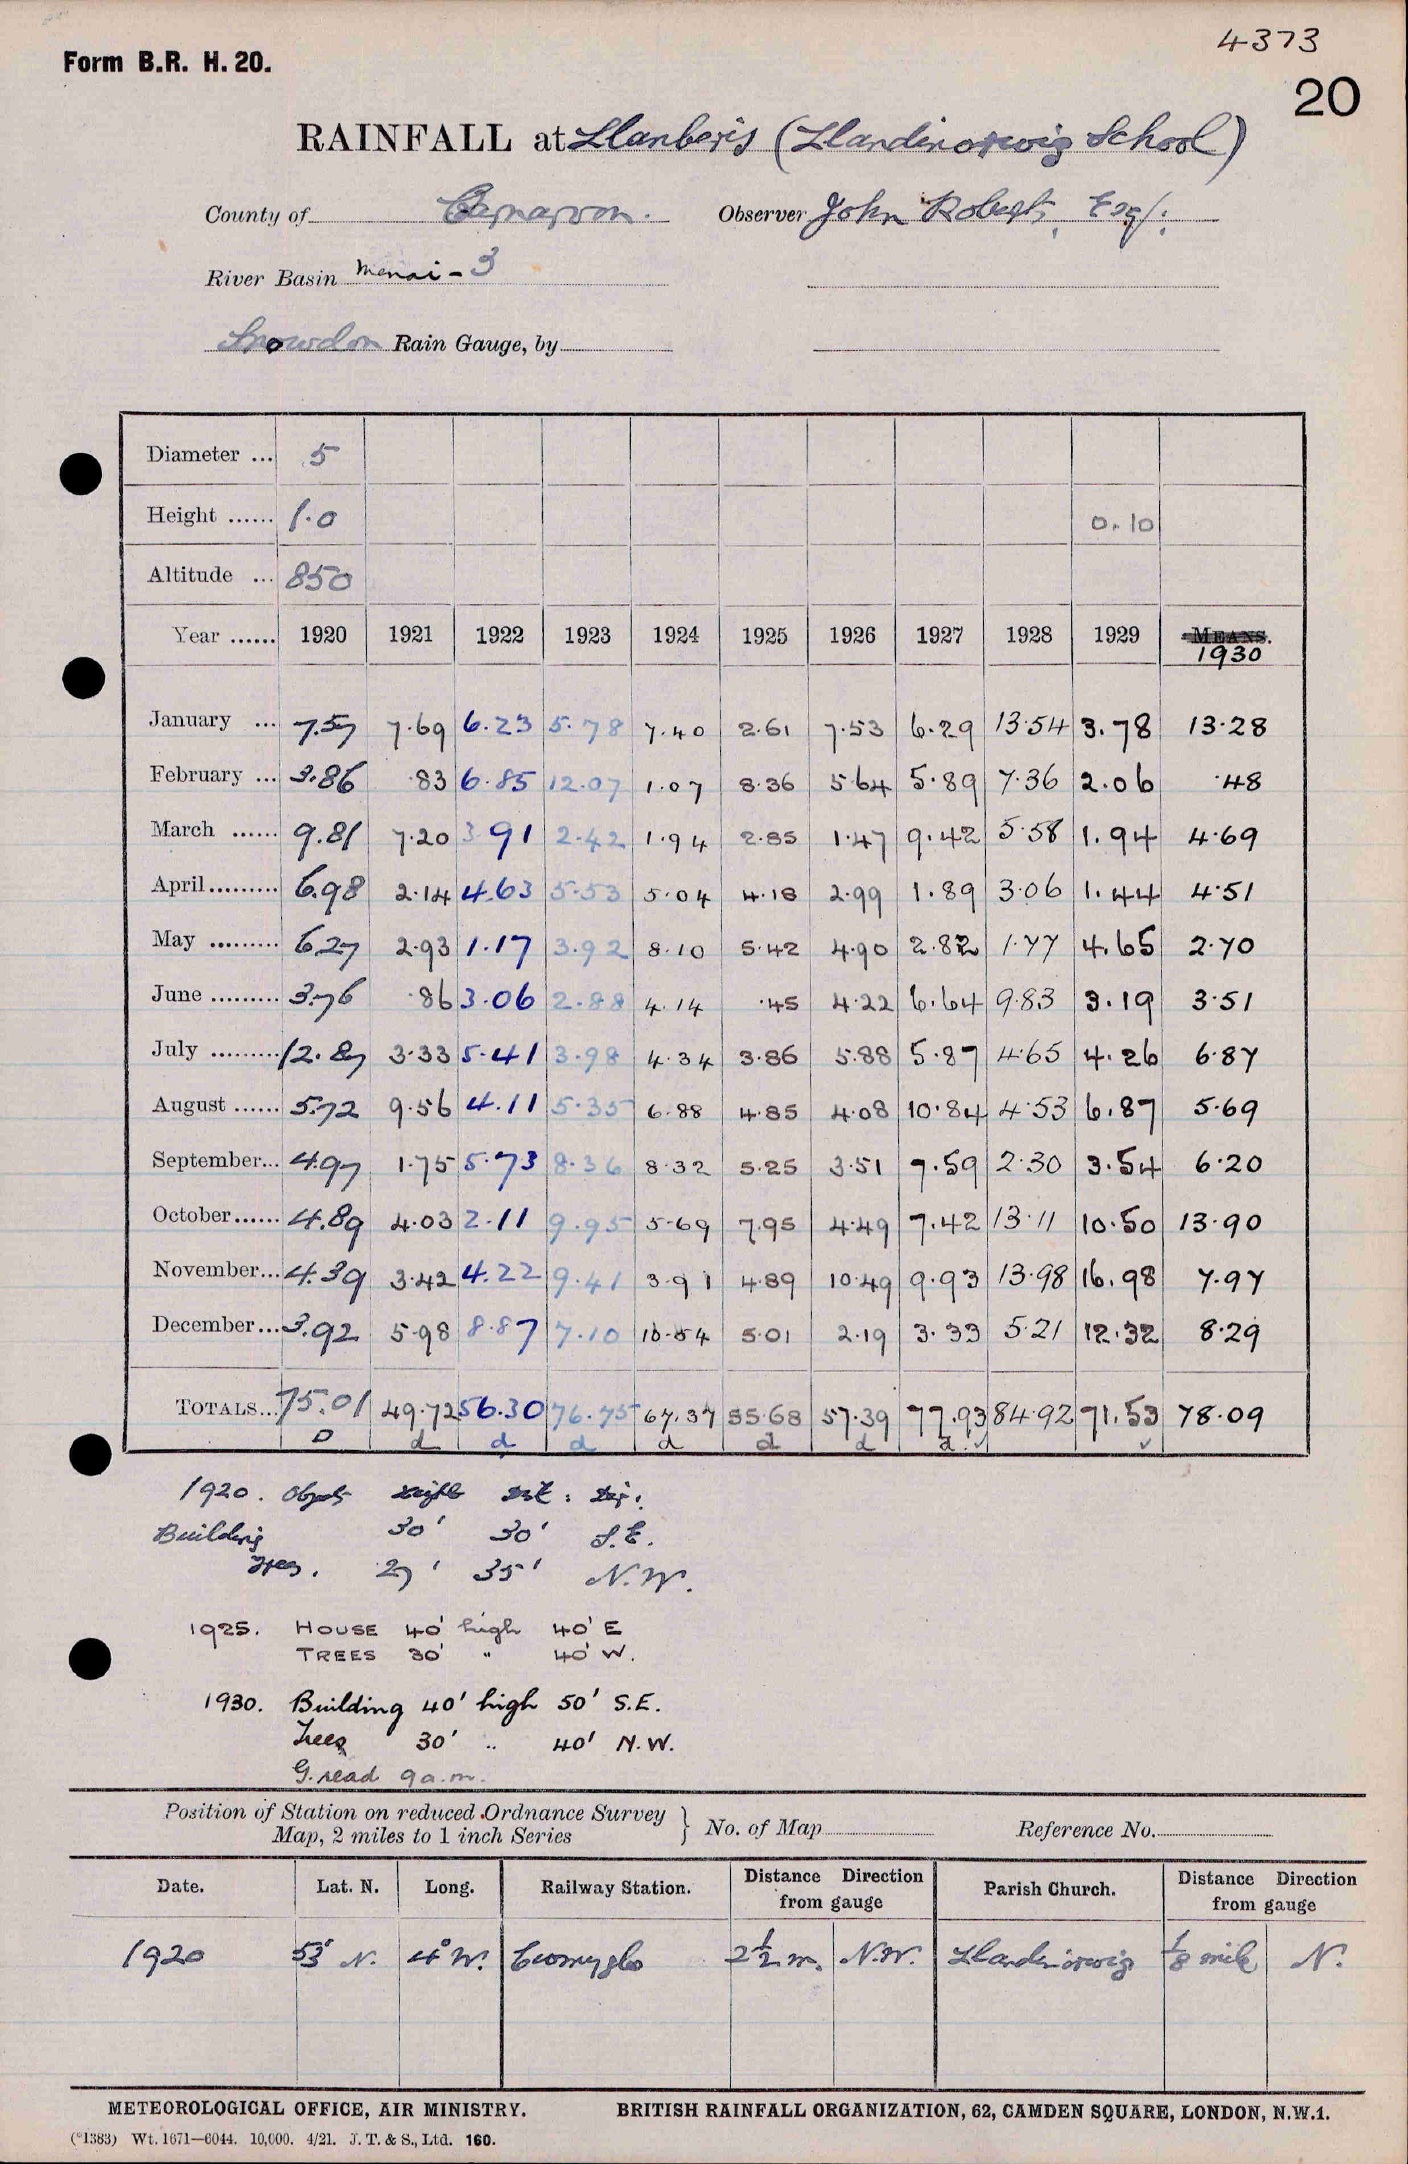 4373
Form B.R. H. 20.
20
RAINFALL at Llanberis (Llandinorwig School)
County of Carnarvon. Observer John Roberts, Esq.
River Basin Menai - 3
Snowdon Rain Gauge, by
Diameter ... 5
Height ...... 1.0 0.10
Altitude ... 850
Year ...... 1920 1921 1922 1923 1924 1925 1926 1927 1928 1929 MEANS.
1930
January ... 7.57 7.69 6.23 5.78 7.40 2.61 7.53 6.29 13.54 3.78 13.28
February ... 3.86 .83 6.85 12.07 1.07 8.36 5.64 5.89 7.36 2.06 .48
March ...... 9.81 7.20 3.91 2.42 1.94 2.85 1.47 9.42 5.58 1.94 4.69
April......... 6.98 2.14 4.63 5.53 5.04 4.18 2.99 1.89 3.06 1.44 4.51
May ......... 6.27 2.93 1.17 3.92 8.10 5.42 4.90 2.82 1.77 4.65 2.70
June ......... 3.76 .86 3.06 2.88 4.14 .45 4.22 6.64 9.83 3.19 3.51
July ......... 12.87 3.33 5.41 3.98 4.34 3.86 5.88 5.87 4.65 4.26 6.87
August ...... 5.72 9.56 4.11 5.35 6.88 4.85 4.08 10.84 4.53 6.87 5.69
September... 4.97 1.75 5.73 8.36 8.32 5.25 3.51 7.59 2.30 3.54 6.20
October...... 4.89 4.03 2.11 9.95 5.69 7.95 4.49 7.42 13.11 10.50 13.90
November... 4.39 3.42 4.22 9.41 3.91 4.89 10.49 9.93 13.98 16.98 7.97
December... 3.92 5.98 8.87 7.10 10.54 5.01 2.19 3.33 5.21 12.32 8.29
TOTALS... 75.01 49.72 56.30 76.75 67.37 55.68 57.39 77.93 84.92 71.53 78.09
D d d d d d d d ✓ ✓
1920. Objects Height Dist: Dir:
Building 30' 30' S.E.
Trees. 27' 35' N.W.
1925. HOUSE 40' high 40' E
TREES 30' " 40' W.
1930. Building 40' high 50' S.E.
Trees 30' " 40' N.W.
G. read 9 a.m.
Position of Station on reduced Ordnance Survey
Map, 2 miles to 1 inch Series } No. of Map Reference No.
Date. Lat. N. Long. Railway Station. Distance Direction from gauge Parish Church. Distance Direction from gauge
1920 53° N. 4° W. 2½ m. N.W. Llandinorwig ⅛ mile N.
METEOROLOGICAL OFFICE, AIR MINISTRY. BRITISH RAINFALL ORGANIZATION, 62, CAMDEN SQUARE, LONDON, N.W.1.
(*1383) Wt. 1671—6044. 10,000. 4/21. J. T. & S., Ltd. 160.